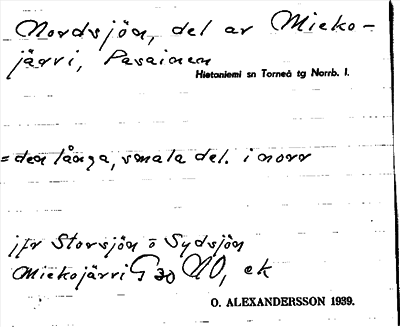 Nordsjön, del av Mieko-
järvi, Pasainen
Hietaniemi sn Torneå tg Norrb. l.
= den långa, smala del. i norr
jfr Storsjön o Sydsjön
Miekojärvi G 30 NO, ek
O. ALEXANDERSSON 1939.